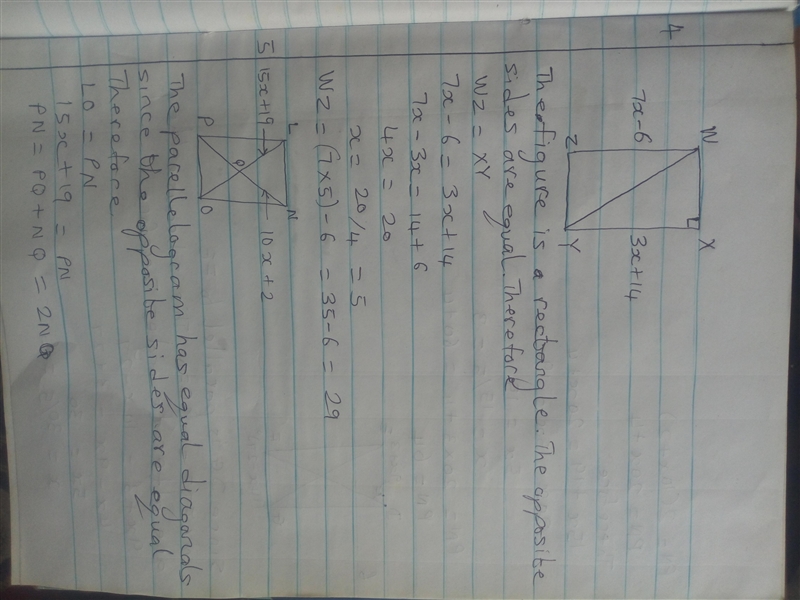 4
W X
7x-6 3x+14
Z Y
The figure is a rectangle. The opposite
sides are equal. Therefore
WZ = XY
7x - 6 = 3x + 14
7x - 3x = 14 + 6
4x = 20
x = 20/4 = 5
WZ = (7x5) - 6 = 35 - 6 = 29
5
L N
15x+19 10x+2
Q
P O
The parellelogram has equal diagonals
since the opposite sides are equal
Therefore
LO = PN
15x + 19 = PN
PN = PQ + NQ = 2NQ